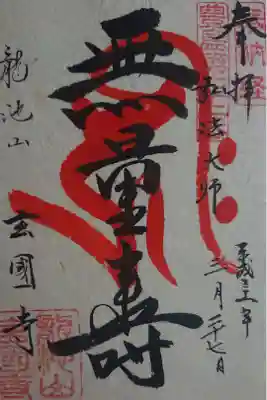 奉拝
弘法大師
平成三十一年
三月二十七日
無量壽
龍池山
玄國寺